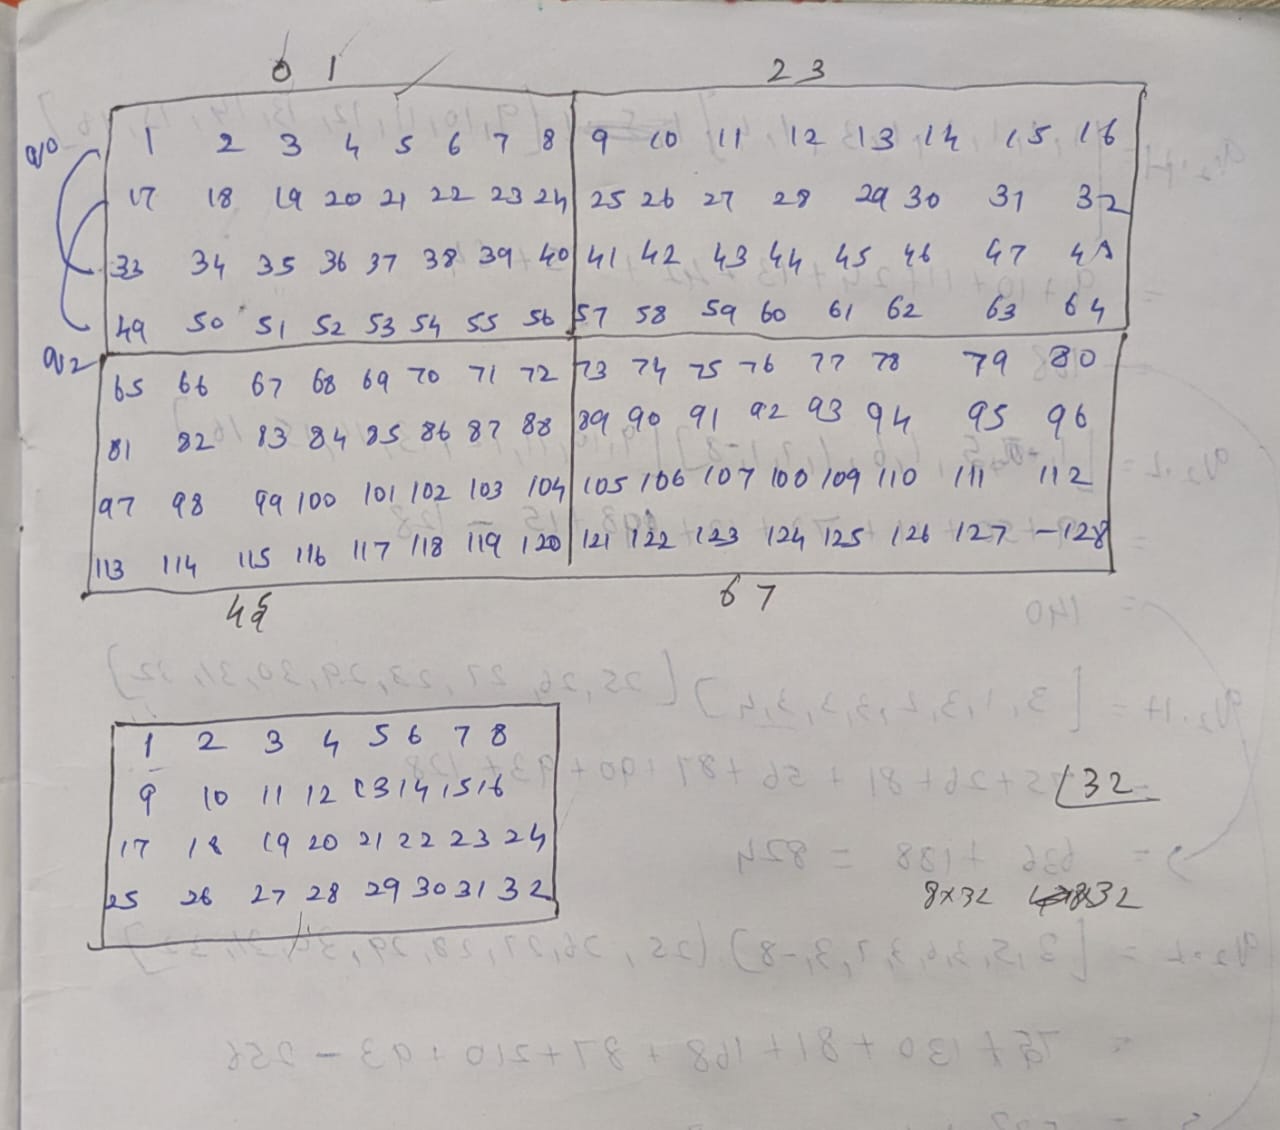 0 1 2 3
q0 1 2 3 4 5 6 7 8 9 10 11 12 13 14 15 16
17 18 19 20 21 22 23 24 25 26 27 28 29 30 31 32
33 34 35 36 37 38 39 40 41 42 43 44 45 46 47 48
49 50 51 52 53 54 55 56 57 58 59 60 61 62 63 64
q2 65 66 67 68 69 70 71 72 73 74 75 76 77 78 79 80
81 82 83 84 85 86 87 88 89 90 91 92 93 94 95 96
97 98 99 100 101 102 103 104 105 106 107 100 109 110 111 112
113 114 115 116 117 118 119 120 121 122 123 124 125 126 127 -128
4 5 6 7
1 2 3 4 5 6 7 8
9 10 11 12 13 14 15 16
17 18 19 20 21 22 23 24
25 26 27 28 29 30 31 32
32
8x32 32